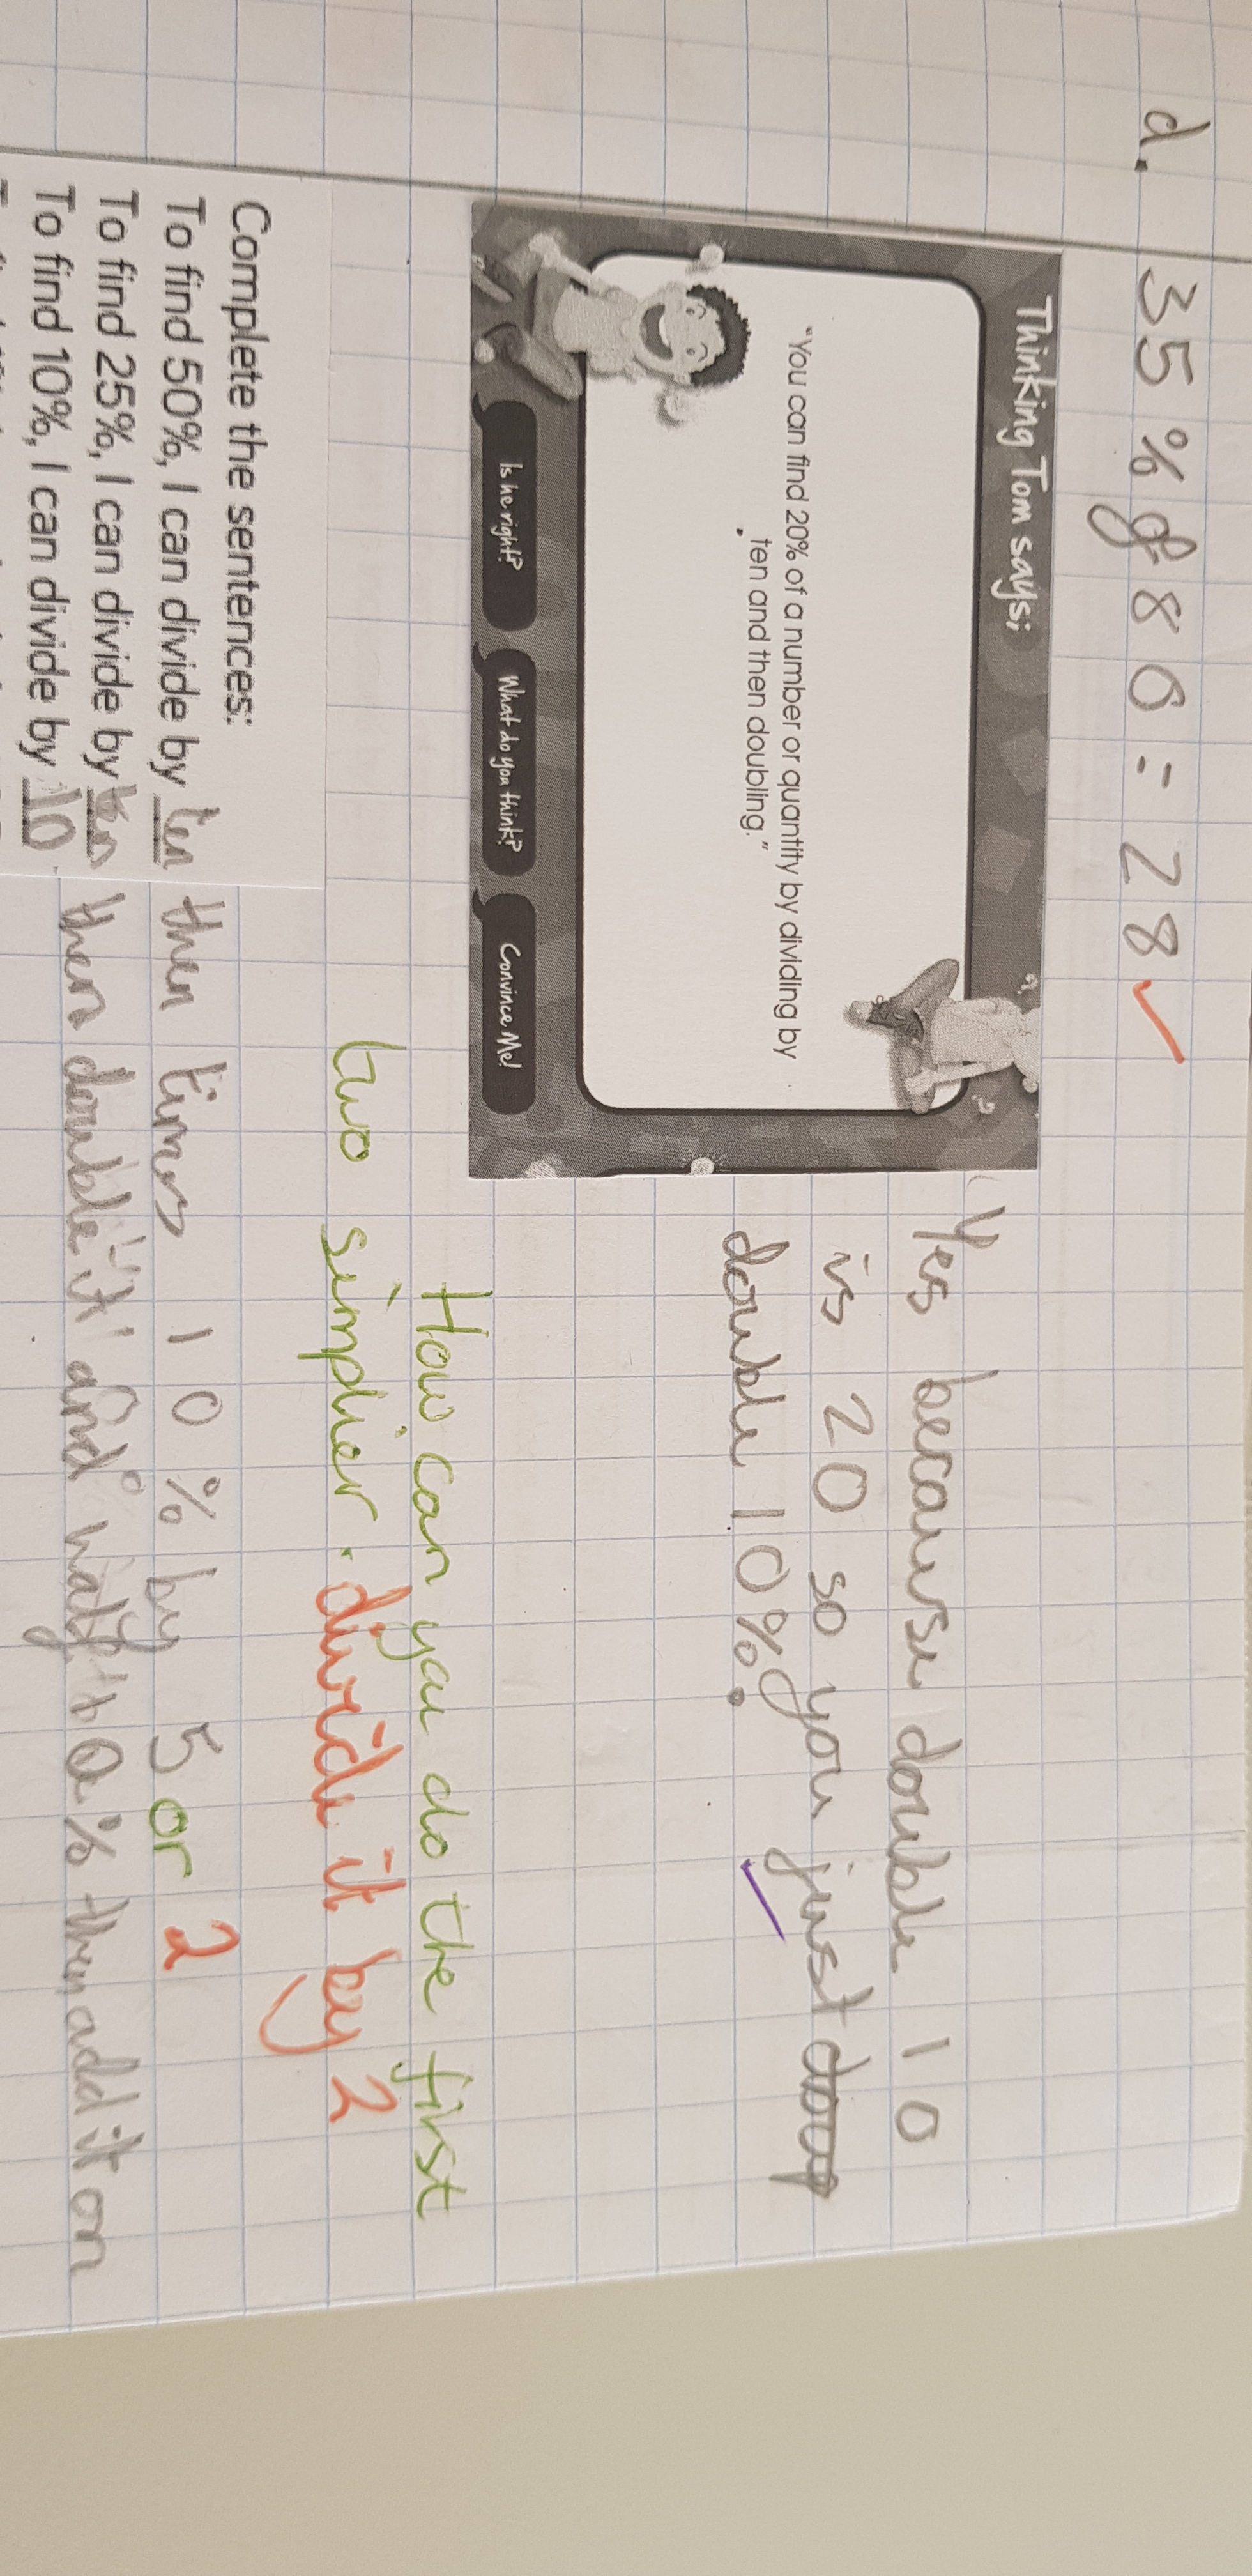 d. 35% of 80 = 28
Thinking Tom says;
"You can find 20% of a number or quantity by dividing by
ten and then doubling."
Is he right?
What do you think?
Convince Me!
Yes because double 10
is 20 so you just
double 10%.
How can you do the first
two simplier. divide it by 2
Complete the sentences:
To find 50%, I can divide by ten then times 10% by 5 or 2
To find 25%, I can divide by ten then double it and half 10% then add it on
To find 10%, I can divide by 10